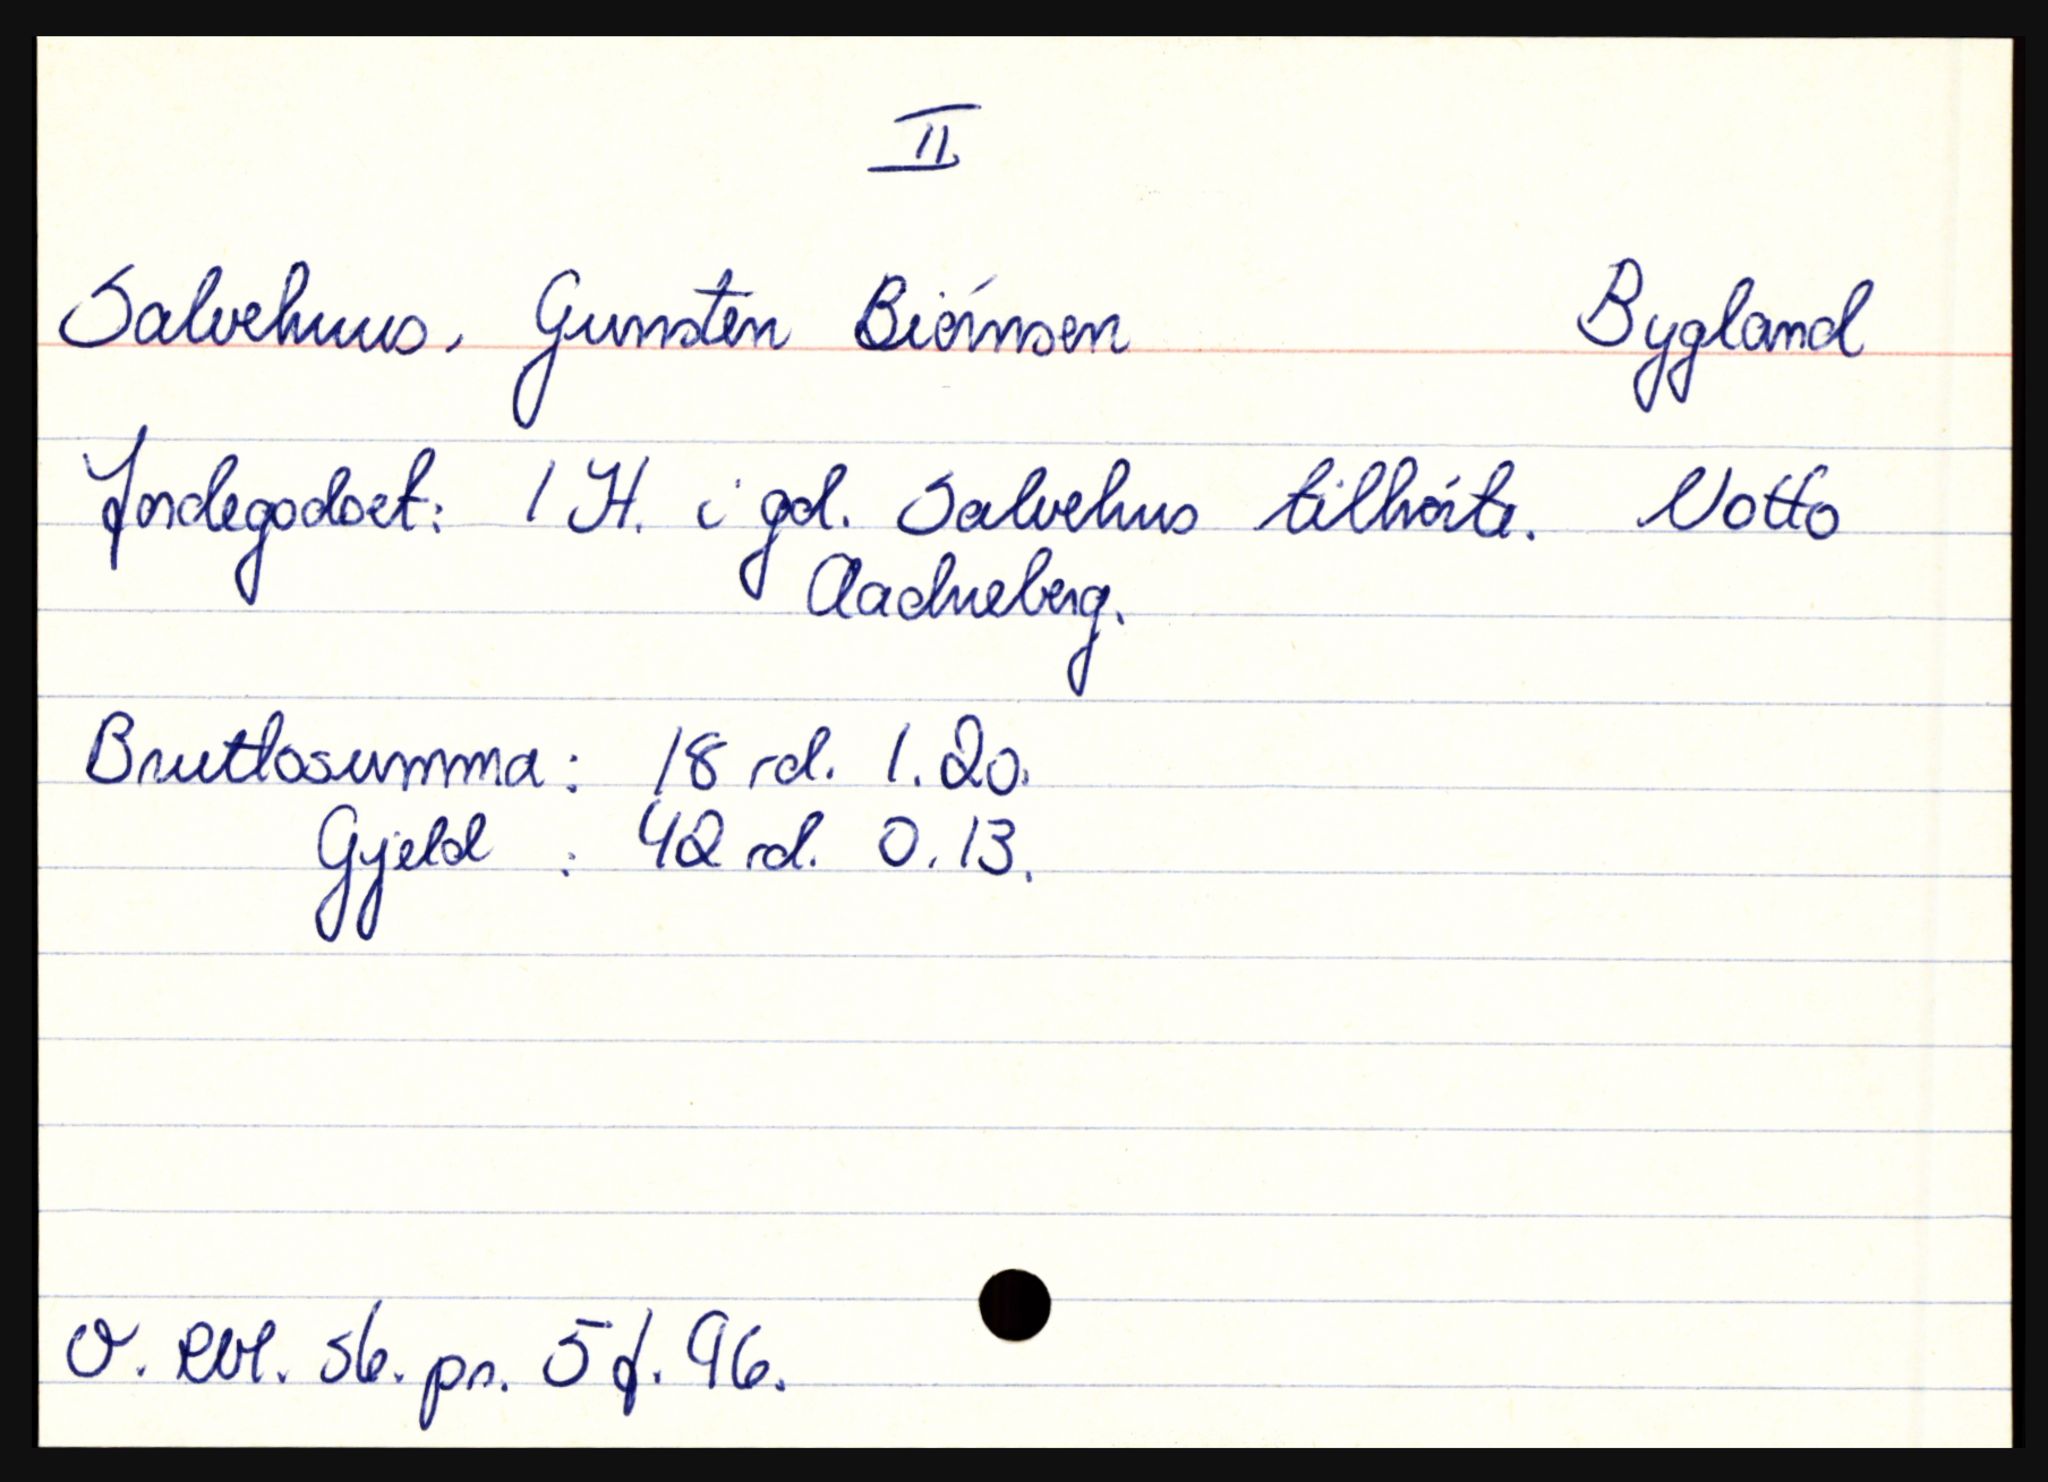 II.
Salvehuus. Gunsten Biórnsen Bygland
Jordegodset: 1 H. i gd. Salvehus tilhórte. Notto
Aadneberg.
Bruttosumma: 18 rd. 1.20.
Gjeld : 42 rd. 0.13.
O. rbl. sk. pr. 5 f. 96.